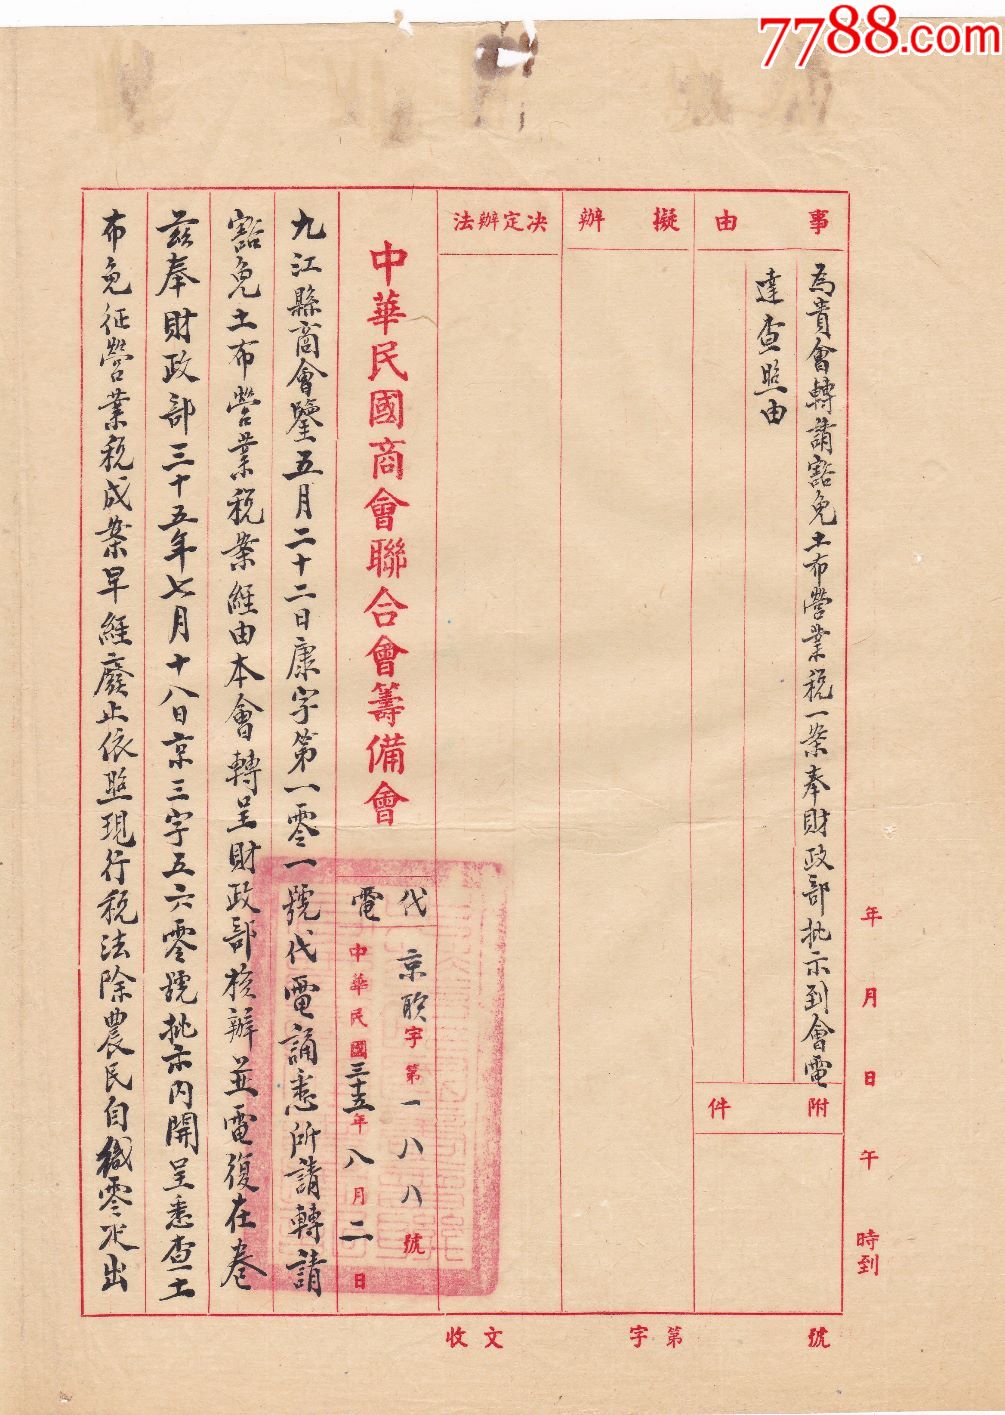 7788.com
事由
為貴會轉請豁免土布營業稅一案奉財政部批示到會電
達查照由
附件
擬辦
決定辦法
中華民國商會聯合會籌備會
代電
京聯字第一八八號
中華民國三十五年八月二日
九江縣商會鑒五月二十二日康字第一零一號代電誦悉所請轉請
豁免土布營業稅案經由本會轉呈財政部核辦並電復在卷
茲奉財政部三十五年七月十八日京三字五六零號批示內開呈悉查土
布免征營業稅成案早經廢止依照現行稅法除農民自織零疋出
年月日午時到
收文字第號